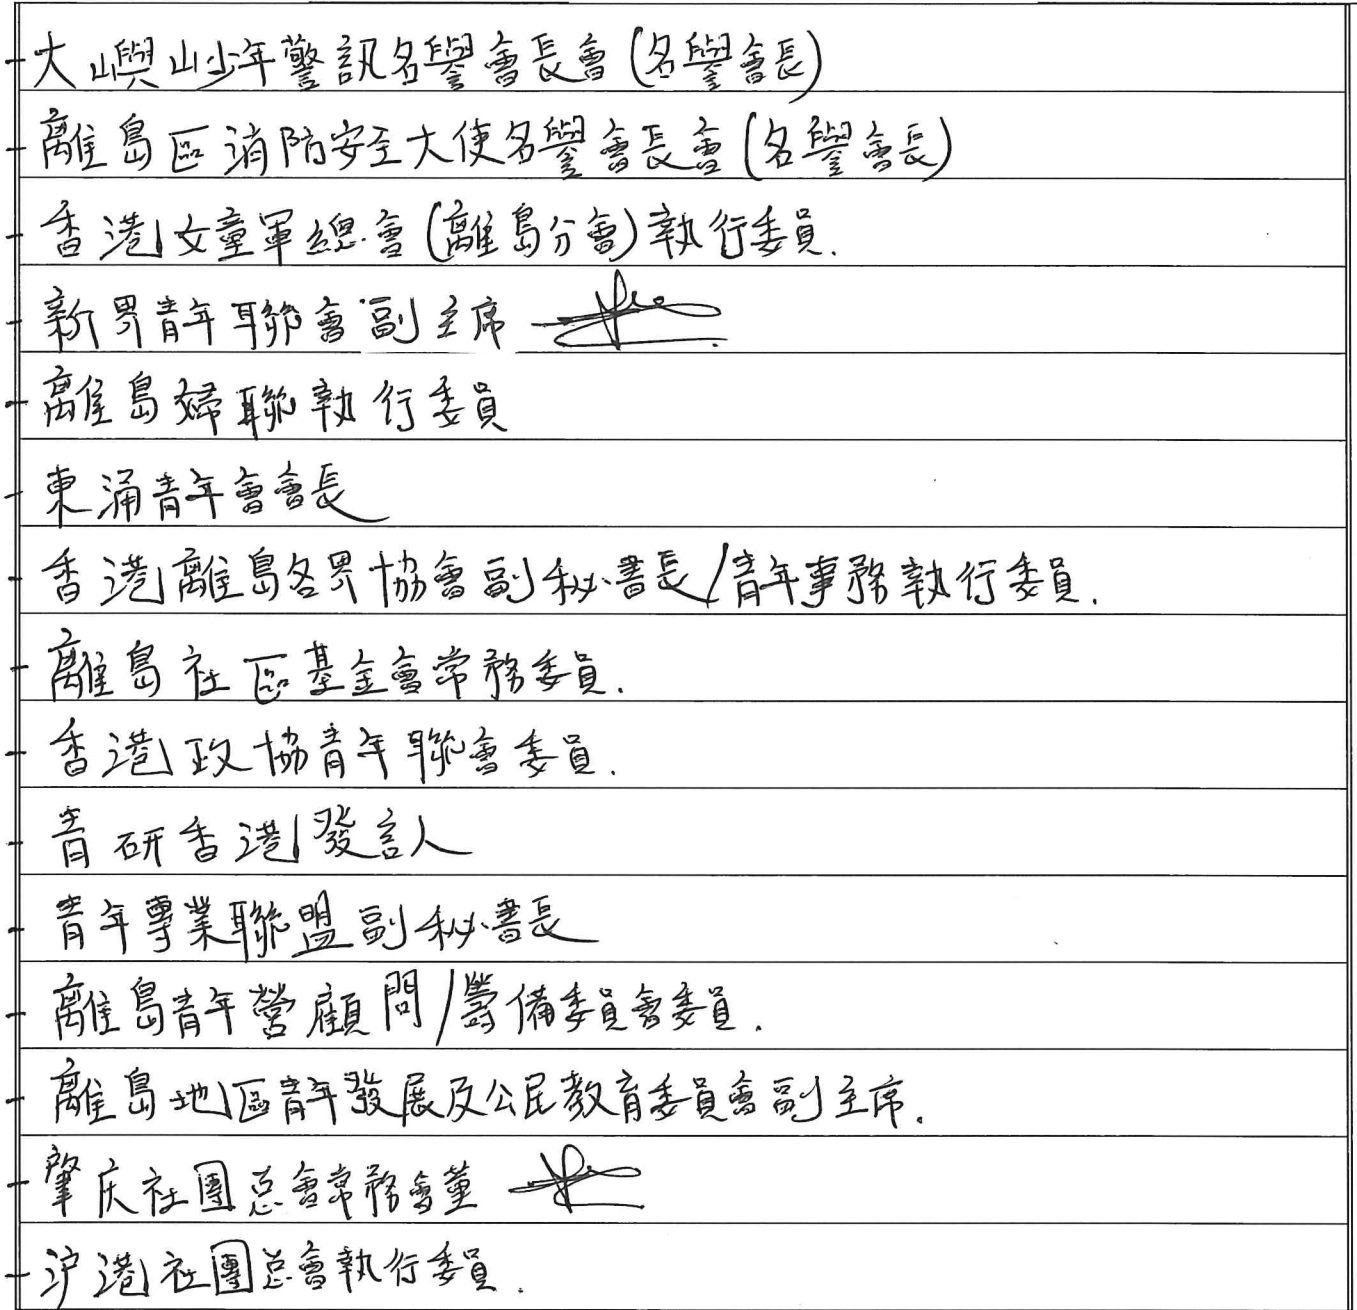 - 大嶼山少年警訊名譽會長會(名譽會長)
- 離島區消防安全大使名譽會長會(名譽會長)
- 香港女童軍總會(離島分會)執行委員.
- 新界青年聯會副主席
- 離島婦聯執行委員
- 東涌青年會會長
- 香港離島各界協會副秘書長/青年事務執行委員.
- 離島社區基金會常務委員.
- 香港政協青年聯會委員.
- 青研香港發言人
- 青年專業聯盟副秘書長
- 離島青年營顧問/籌備委員會委員.
- 離島地區青年發展及公民教育委員會副主席.
- 肇庆社團总會常務會董
- 沪港社團总會執行委員.